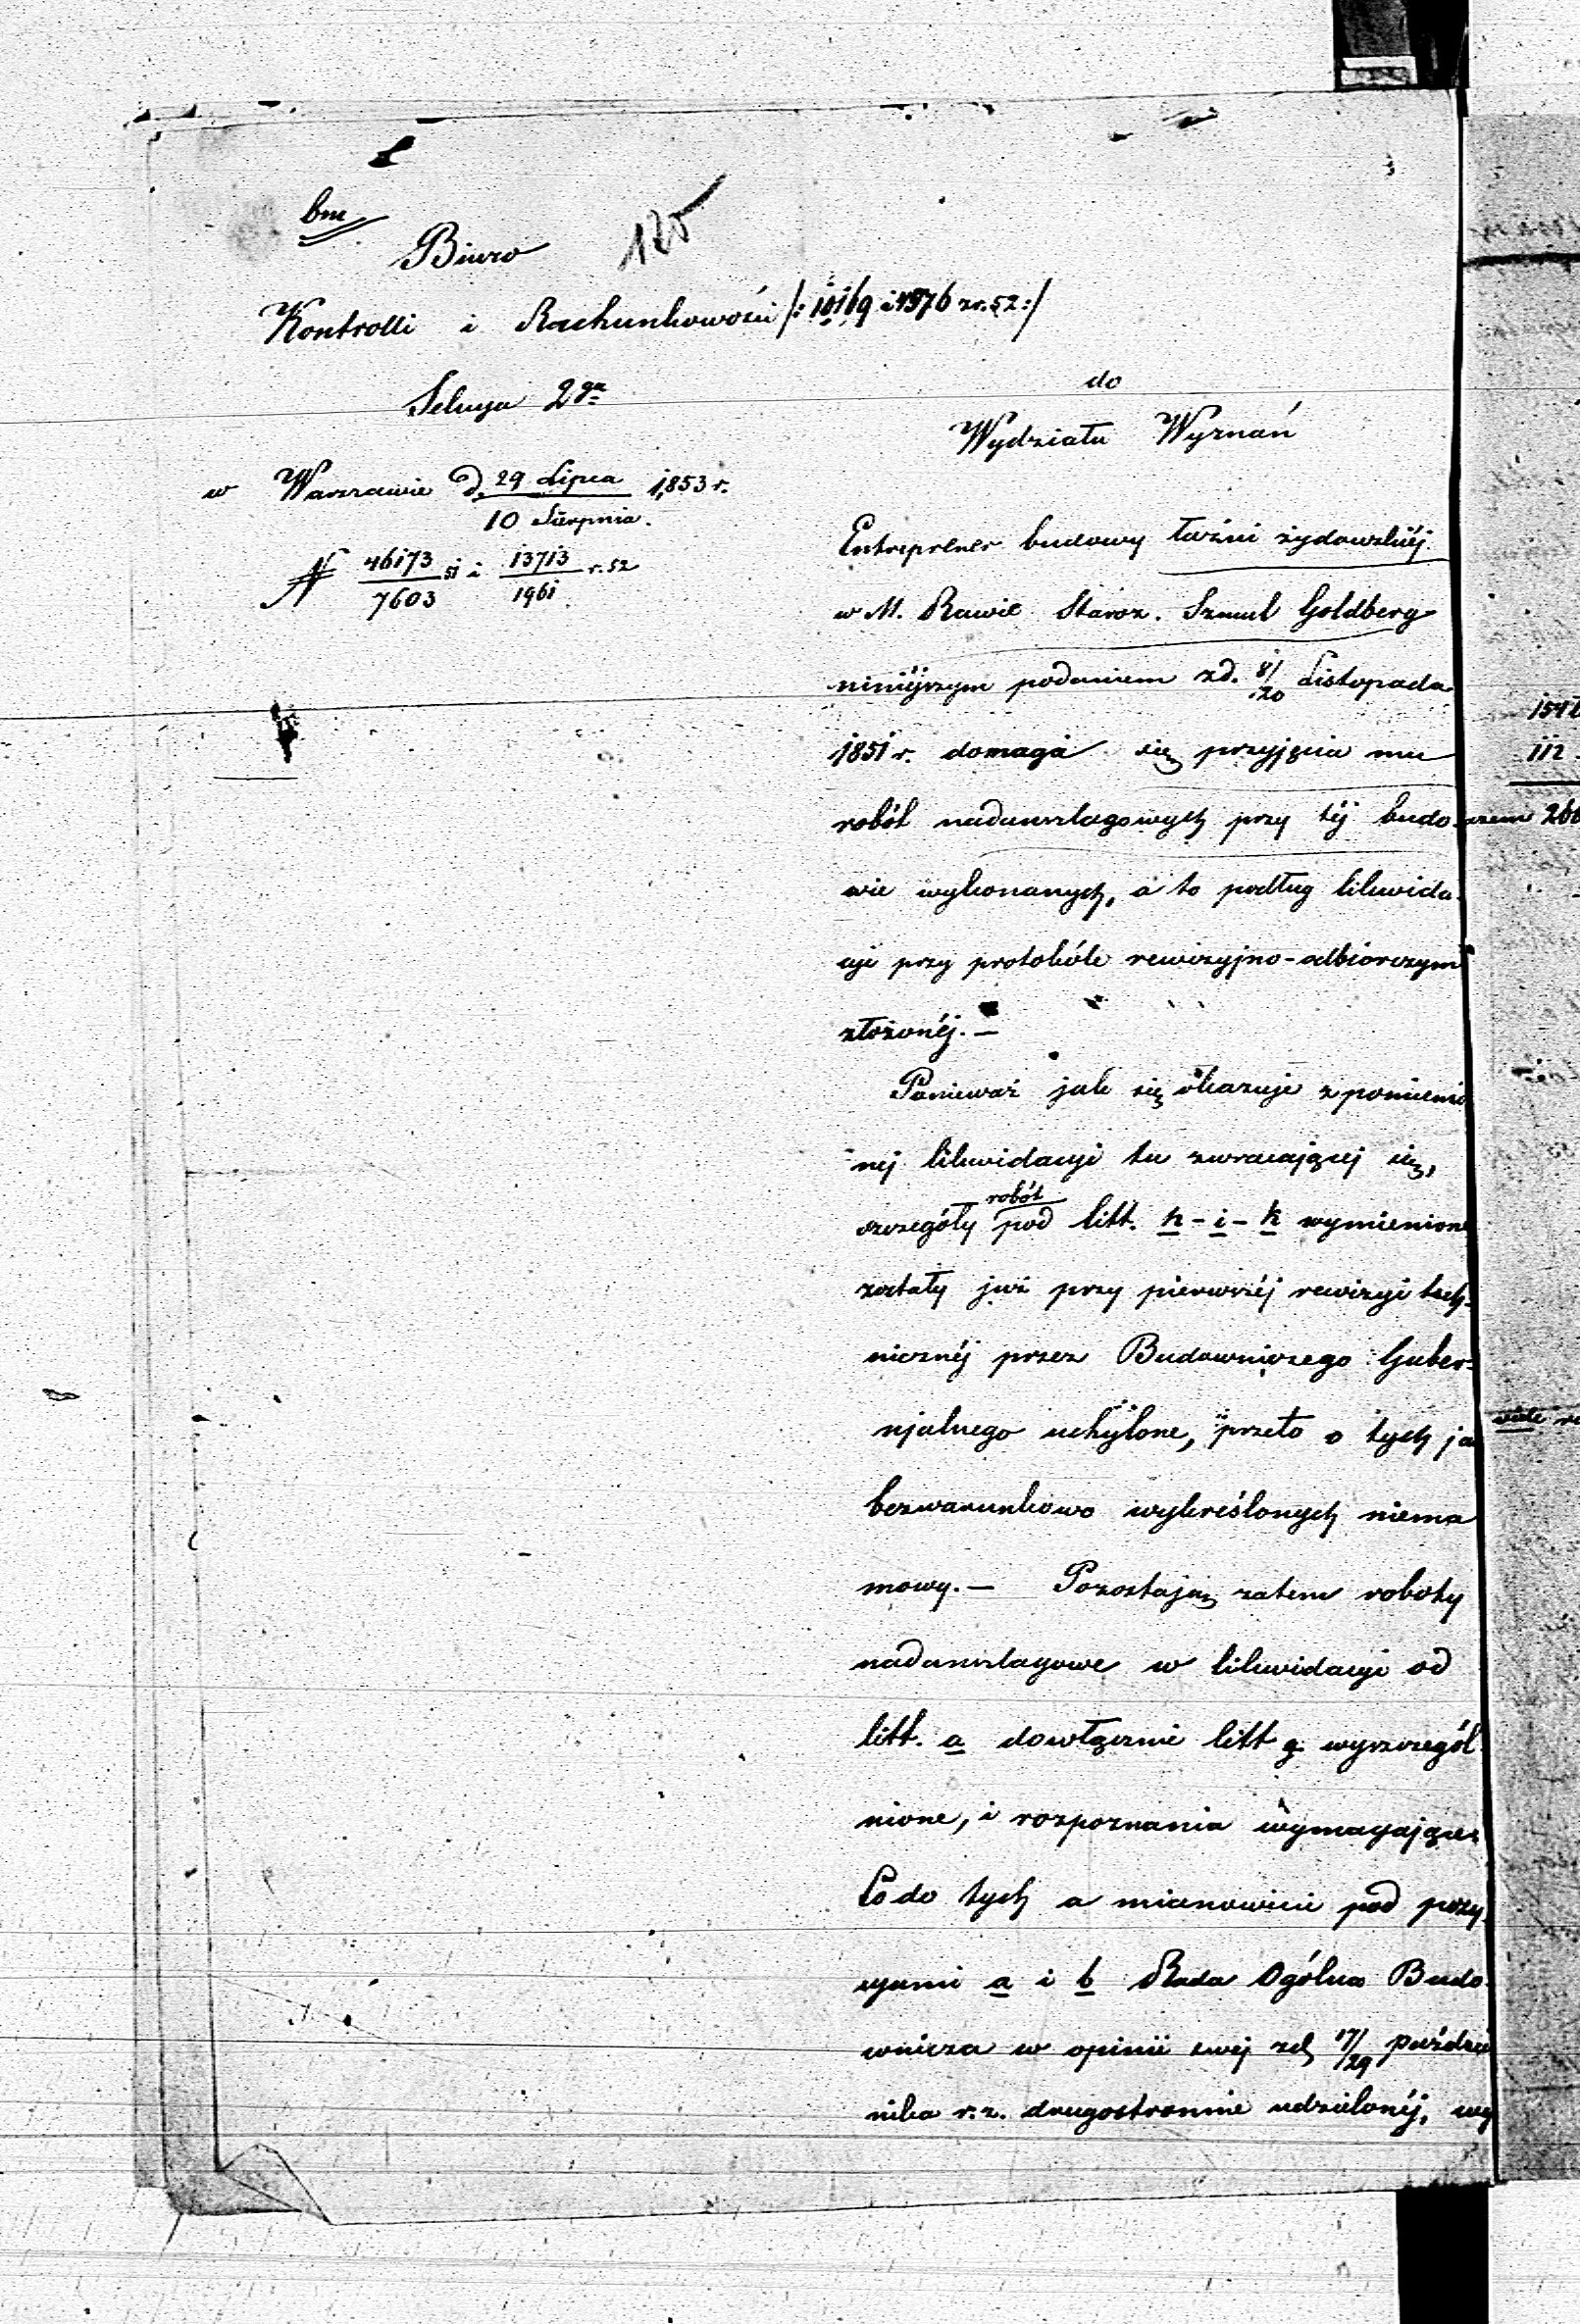 bm
Biuro
125
Kontrolli i Rachunkowości /: 10169 i 4576 z r. 52 :/
Sekcya 2ga
do
Wydziału Wyznań
w Warszawie d. 29 Lipca 1853 r.
10 Sierpnia.
N 46173 51 i 13713 r. 52
7603 1961
Entreprener budowy łaźni żydowskiéj
w M. Rawie Staroz. Szmul Goldberg
niniéjszym podaniem z d. 8/20 Listopada
1851 r. domaga się przyjęcia mu
robót nadanszlagowych przy téj budo-
wie wykonanych, a to podług likwida-
cyi przy protokóle rewizyjno-odbiorczym
złożonéj. —
Ponieważ jak się okazuje z pomienio
nej likwidacyi tu zwracającej się,
szczegóły robót pod litt. h - i - k wymienione
zostały już przy pierwszéj rewizyi tech-
nicznéj przez Budowniczego Guber-
njalnego uchylone, przeto o tych ja
bezwarunkowo wykreślonych niema
mowy. — Pozostają zatem roboty
nadanszlagowe w likwidacyi od
litt. a dowłącznie litt g wyszczegól-
nione, i rozpoznania wymagające
Co do tych a mianowicie pod pozy-
cyami a i b Rada Ogólna Budo-
wnicza w opinii swej z d. 17/29 paździer
nika r. z. drugostronnie udzielonéj, wy